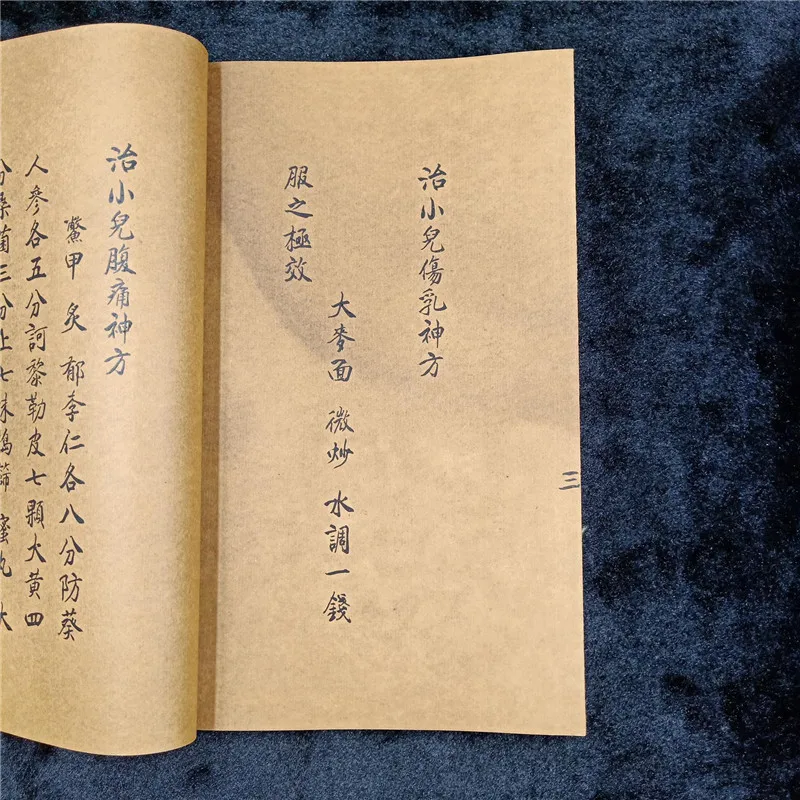 治小兒傷乳神方
大麥面 微炒 水調一錢
服之極效
三
治小兒腹痛神方
鱉甲 炙 郁李仁各八分防葵
人參各五分訶黎勒皮七顆大黃四
分桑菌三分上七味搗篩 蜜丸 大